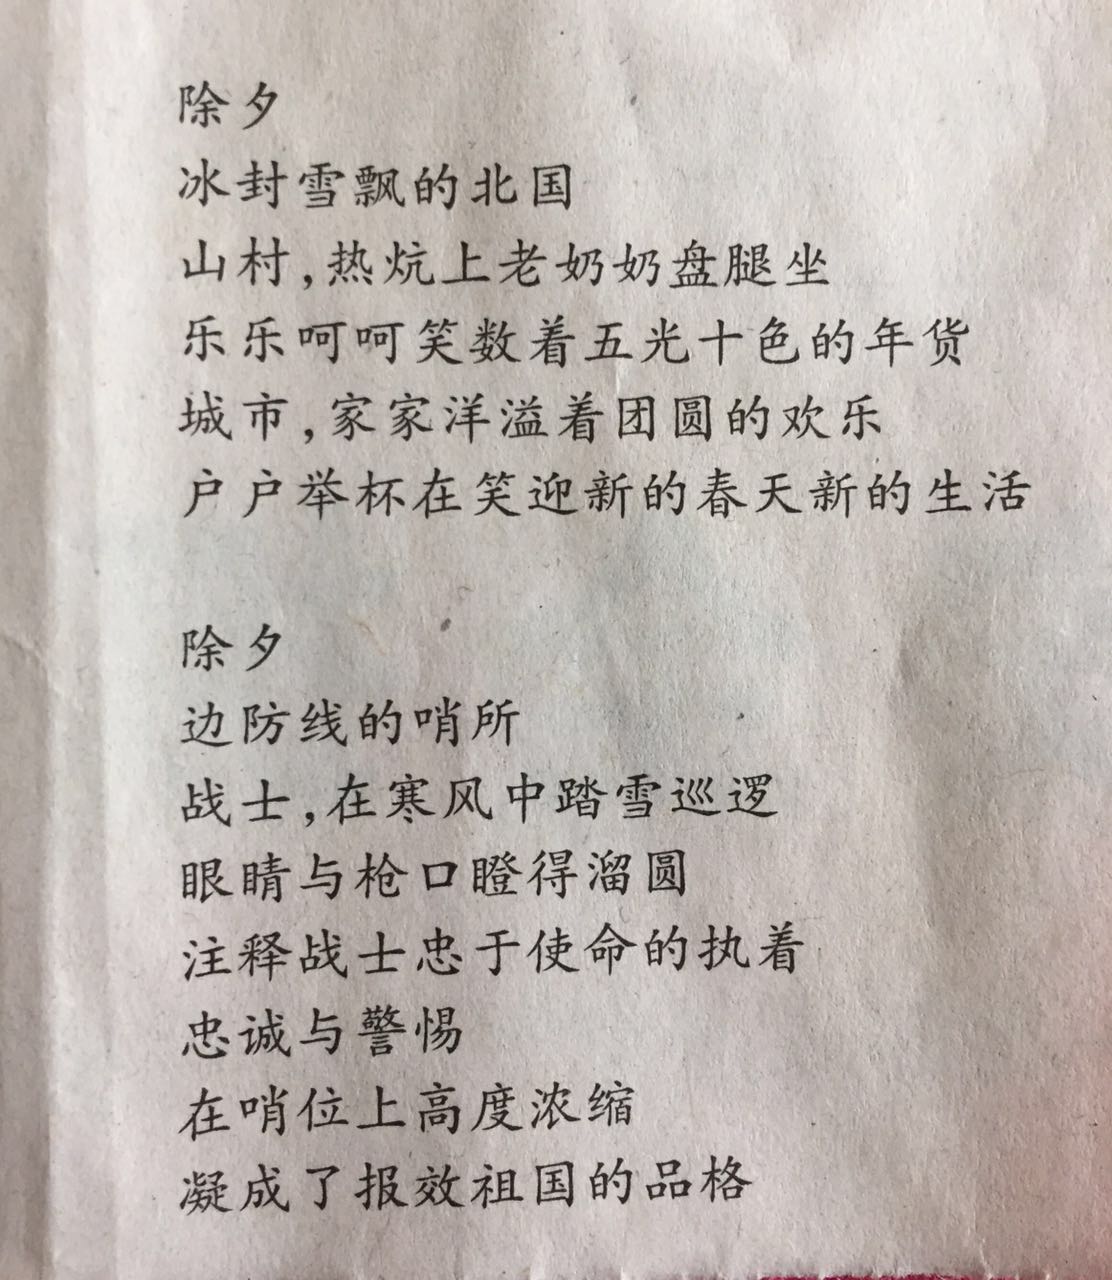 除夕
冰封雪飘的北国
山村,热炕上老奶奶盘腿坐
乐乐呵呵笑数着五光十色的年货
城市,家家洋溢着团圆的欢乐
户户举杯在笑迎新的春天新的生活
除夕
边防线的哨所
战士,在寒风中踏雪巡逻
眼睛与枪口瞪得溜圆
注释战士忠于使命的执着
忠诚与警惕
在哨位上高度浓缩
凝成了报效祖国的品格